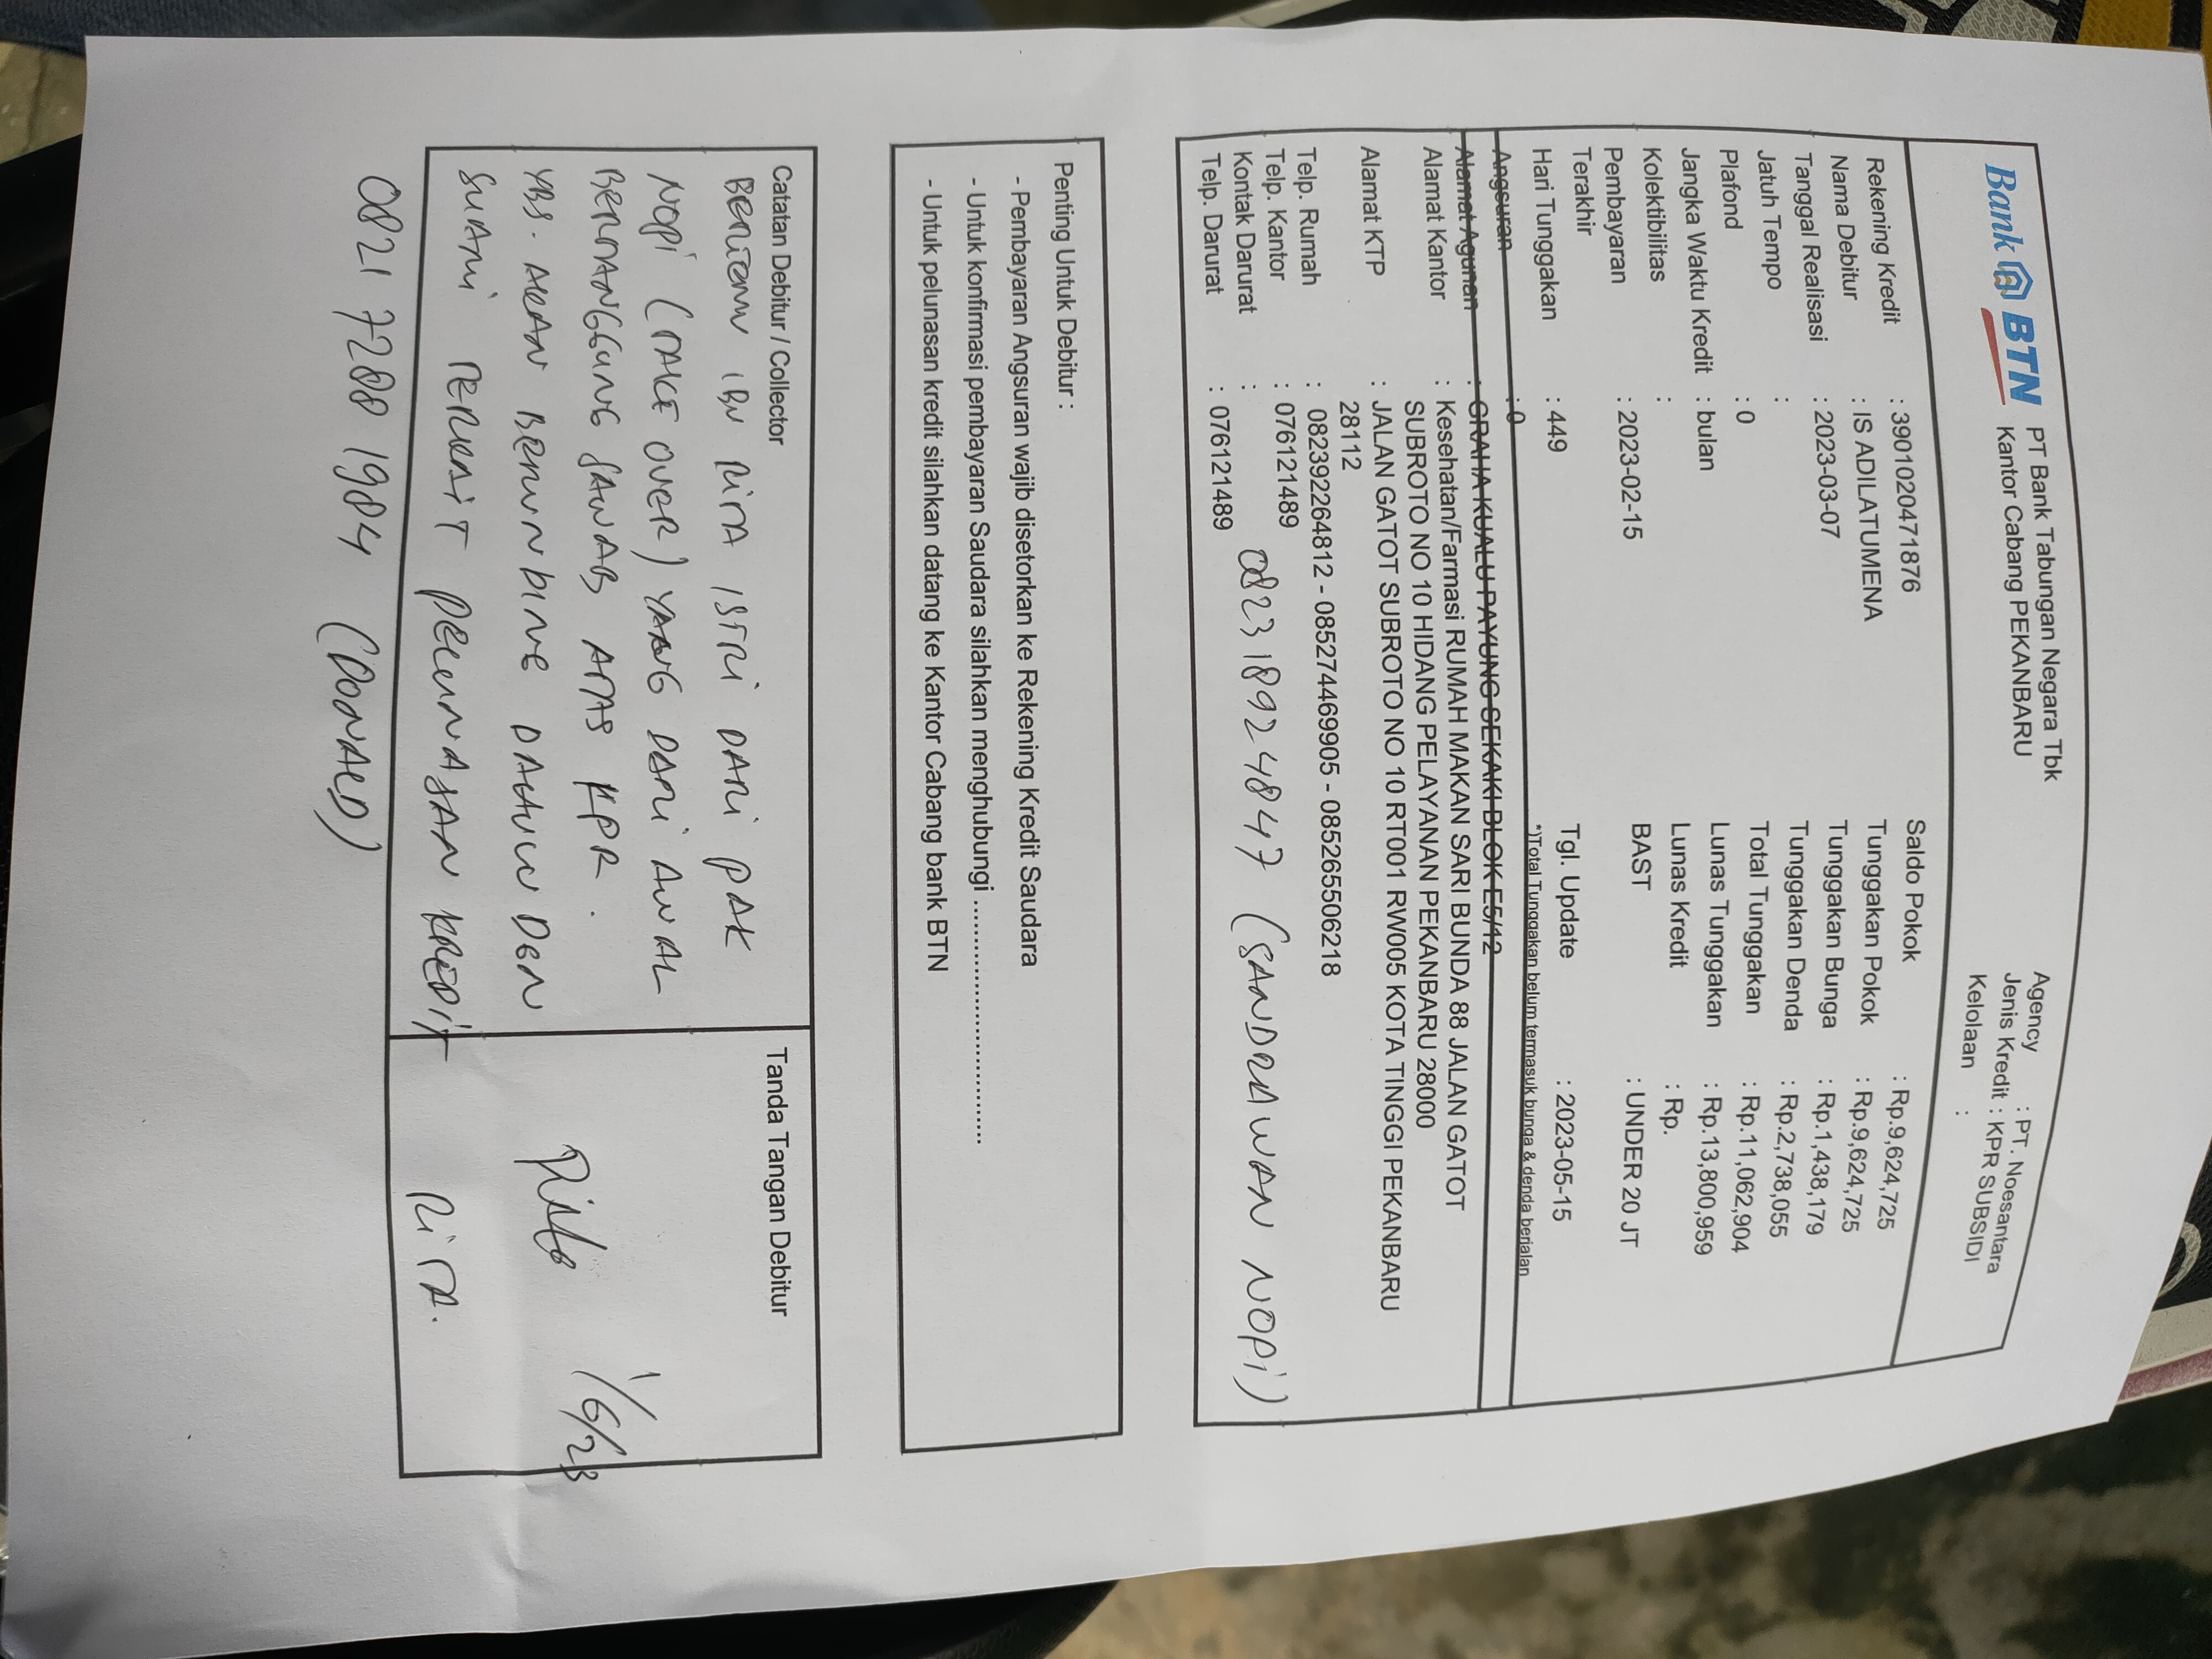 Bank BTN
PT Bank Tabungan Negara Tbk
Kantor Cabang PEKANBARU
Agency : PT. Noesantara
Jenis Kredit : KPR SUBSIDI
Kelolaan :
Rekening Kredit : 3901020471876
Nama Debitur : IS ADILATUMENA
Tanggal Realisasi : 2023-03-07
Jatuh Tempo :
Plafond : 0
Jangka Waktu Kredit : bulan
Kolektibilitas :
Pembayaran : 2023-02-15
Terakhir
Hari Tunggakan : 449
Angsuran : 0
Saldo Pokok : Rp.9,624,725
Tunggakan Pokok : Rp.9,624,725
Tunggakan Bunga : Rp.1,438,179
Tunggakan Denda : Rp.2,738,055
Total Tunggakan : Rp.11,062,904
Lunas Tunggakan : Rp.13,800,959
Lunas Kredit : Rp.
BAST : UNDER 20 JT
Tgl. Update : 2023-05-15
*)Total Tunggakan belum termasuk bunga & denda berjalan
Alamat Agunan : GRAHA KUALU PAYUNG SEKAKI BLOK E5/12
Alamat Kantor : Kesehatan/Farmasi RUMAH MAKAN SARI BUNDA 88 JALAN GATOT
SUBROTO NO 10 HIDANG PELAYANAN PEKANBARU 28000
Alamat KTP : JALAN GATOT SUBROTO NO 10 RT001 RW005 KOTA TINGGI PEKANBARU
28112
Telp. Rumah : 082392264812 - 085274469905 - 085265506218
Telp. Kantor : 076121489
Kontak Darurat :
Telp. Darurat : 076121489
0823 1892 4847 (SANDRAWAN NOPI)
Penting Untuk Debitur :
- Pembayaran Angsuran wajib disetorkan ke Rekening Kredit Saudara
- Untuk konfirmasi pembayaran Saudara silahkan menghubungi ..............................
- Untuk pelunasan kredit silahkan datang ke Kantor Cabang bank BTN
Catatan Debitur / Collector
Tanda Tangan Debitur
BERTEMU IBU RITA ISTRI DARI PAK
NOPI (TAKE OVER) YANG DARI AWAL
BERTANGGUNG JAWAB ATAS KPR.
YBS. AKAN BERUNDING DAHULU DGN
SUAMI TERKAIT PELUNASAN KREDIT
0821 7288 1984 (DONALD)
Rita
1/6/23
RITA.